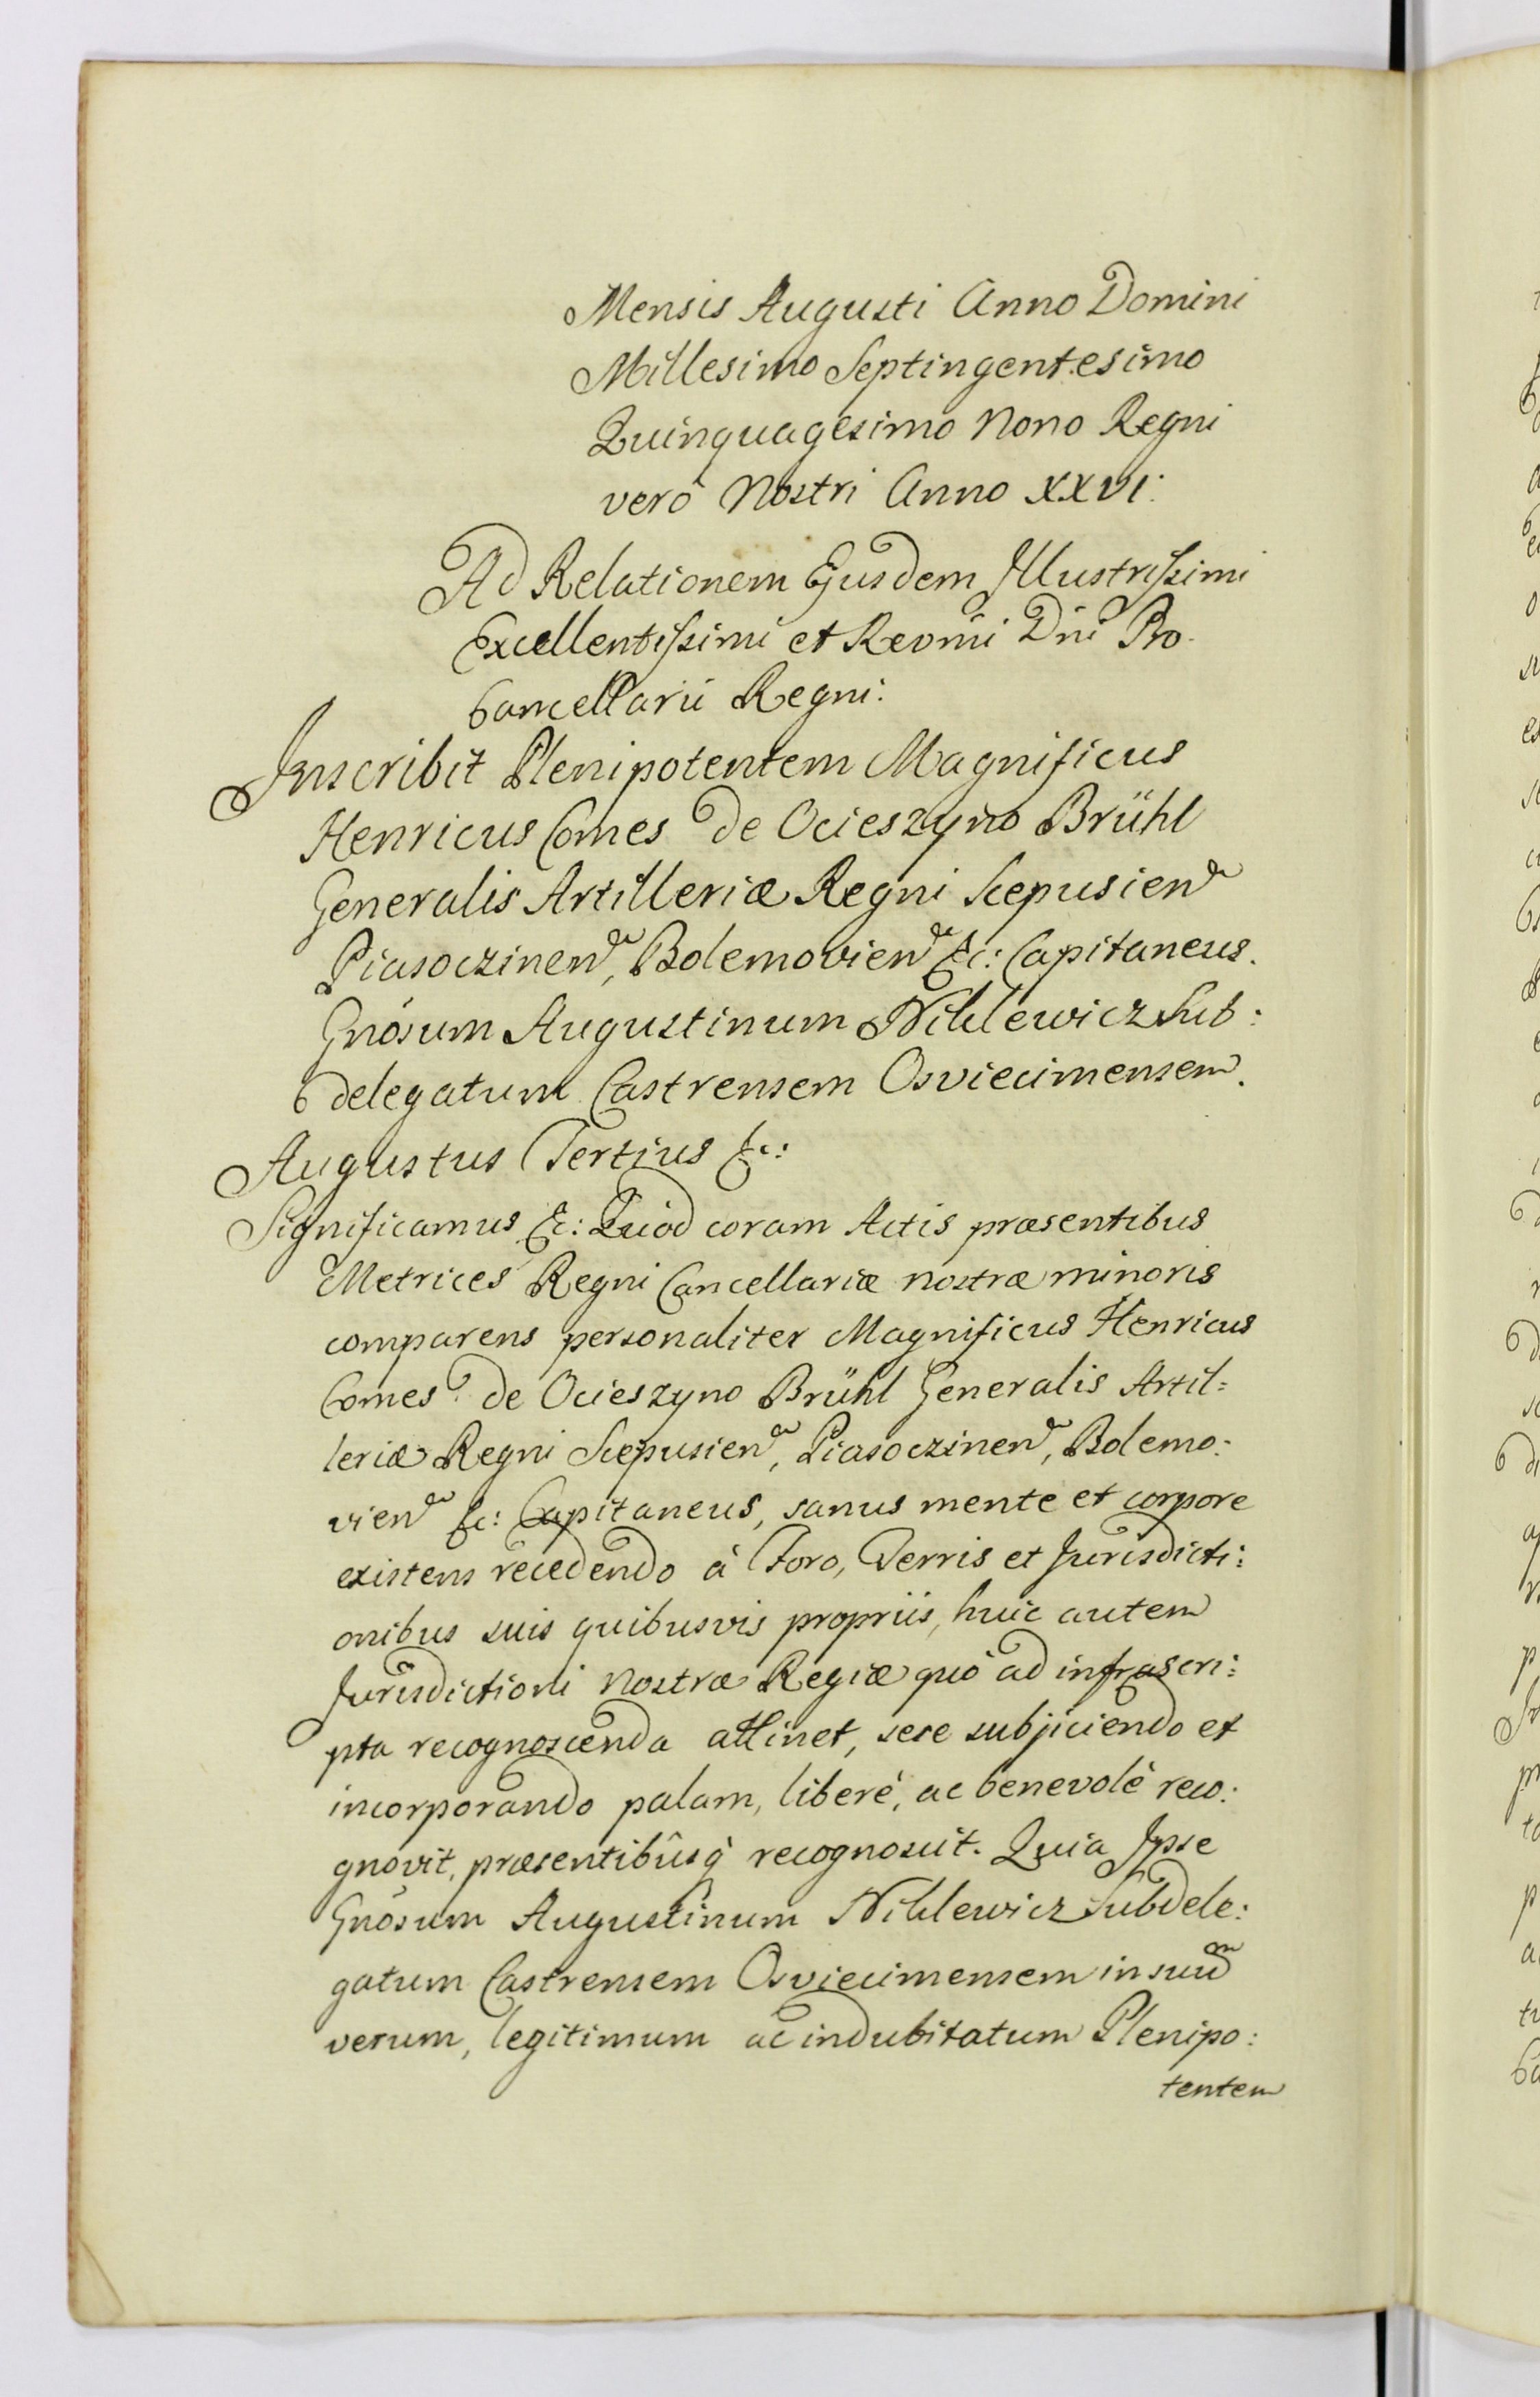 Mensis Augusti Anno Domini
Millesimo Septingentesimo
Quinquagesimo Nono Regni
verò Nostri Anno XXVI.
Ad Relationem Ejusdem Illustrissimi
Excellentissimi et Revmi Dni Pro
Cancellarii Regni:
Inscribit Plenipotentem Magnificus
Henricus Comes de Ocieszyno Brühl
Generalis Artilleriæ Regni Scepusien
Piasoczinen, Bolemovien &c: Capitaneus.
Gnosum Augustinum Niklewicz Sub:
delegatum Castrensem Osviecimensem.
Augustus Tertius &c:
Significamus &c: Quod coram Actis præsentibus
Metrices Regni Cancellariæ nostræ minoris
comparens personaliter Magnificus Henricus
Comes de Ocieszyno Brühl Generalis Artil=
leriæ Regni Scepusien, Piasoczinen, Bolemo:
vien &c: Capitaneus, sanus mente et corpore
existens recedendo à Foro, Terris et Jurisdicti:
onibus suis quibusvis propriis, huic autem
Jurisdictioni Nostræ Regiæ quò ad infrascri:
pta recognoscenda attinet, sese subjiciendo et
incorporando palam, liberè, ac benevolè reco:
gnovit, præsentibûsq́ recognoscit. Quia Ipse
Gnosum Augustinum Niklewicz Subdele:
gatum Castrensem Osviecimensem in suum
verum, legitimum ac indubitatum Plenipo:
tentem